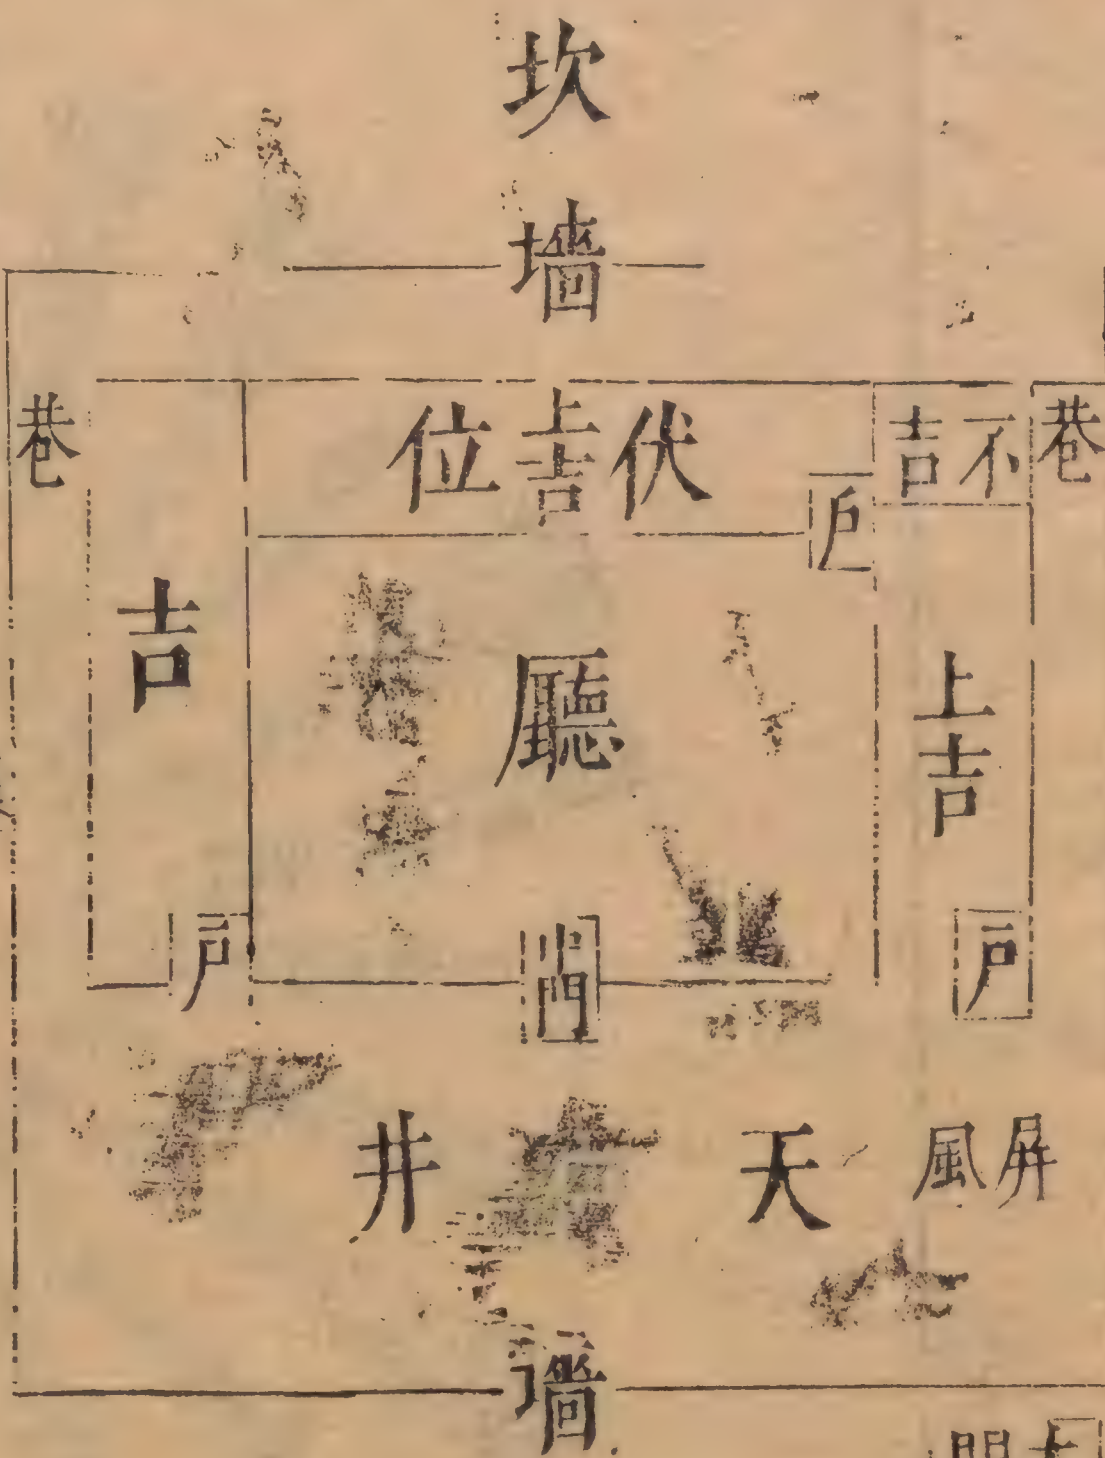 坎
墻
巷
不吉
伏上吉位
巷
戶
吉
廳
上吉
戶
戶
屏風
天井
墻